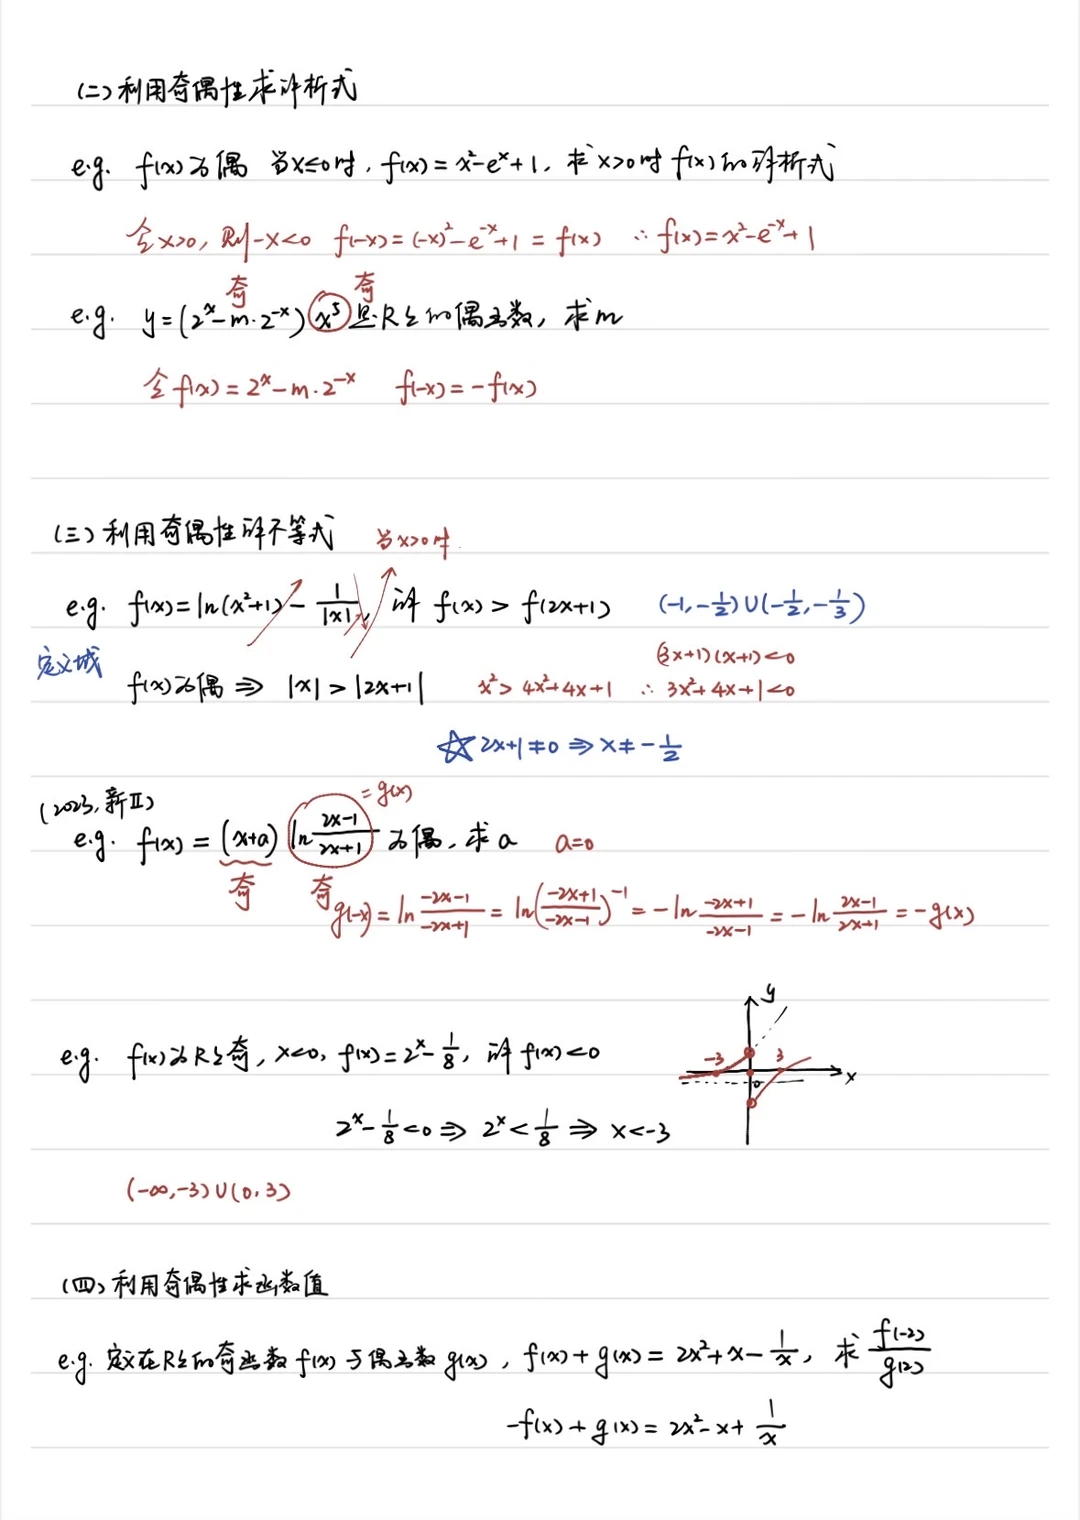 (二)利用奇偶性求解析式
e.g. f(x)为偶 当x≤0时, f(x)=x²-eˣ+1, 求x>0时f(x)的解析式
令x>0, 则-x<0 f(-x)=(-x)²-e⁻ˣ+1=f(x) ∴f(x)=x²-e⁻ˣ+1
奇 奇
e.g. y=(2ˣ-m·2⁻ˣ)x⁵是R上的偶函数, 求m
令f(x)=2ˣ-m·2⁻ˣ f(-x)=-f(x)
(三)利用奇偶性解不等式 当x>0时.
e.g. f(x)=ln(x²+1)-1/|x|, 解f(x)>f(2x+1) (-1,-1/2)∪(-1/2,-1/3)
定义域 (3x+1)(x+1)<0
f(x)为偶⇒|x|>|2x+1| x²>4x²+4x+1 ∴3x²+4x+1<0
☆2x+1≠0⇒x≠-1/2
(2023,新Ⅱ) =g(x)
e.g. f(x)=(x+a)ln(2x-1)/(2x+1)为偶, 求a a=0
奇 奇 g(-x)=ln(-2x-1)/(-2x+1)=ln((-2x+1)/(-2x-1))⁻¹=-ln(-2x+1)/(-2x-1)=-ln(2x-1)/(2x+1)=-g(x)
y
-3 3
0 x
e.g. f(x)为R上奇, x<0, f(x)=2ˣ-1/8, 解f(x)<0
2ˣ-1/8<0⇒2ˣ<1/8⇒x<-3
(-∞,-3)∪(0,3)
(四)利用奇偶性求函数值
e.g. 定义在R上的奇函数f(x)与偶函数g(x), f(x)+g(x)=2x²+x-1/x, 求f(-2)/g(2)
-f(x)+g(x)=2x²-x+1/x